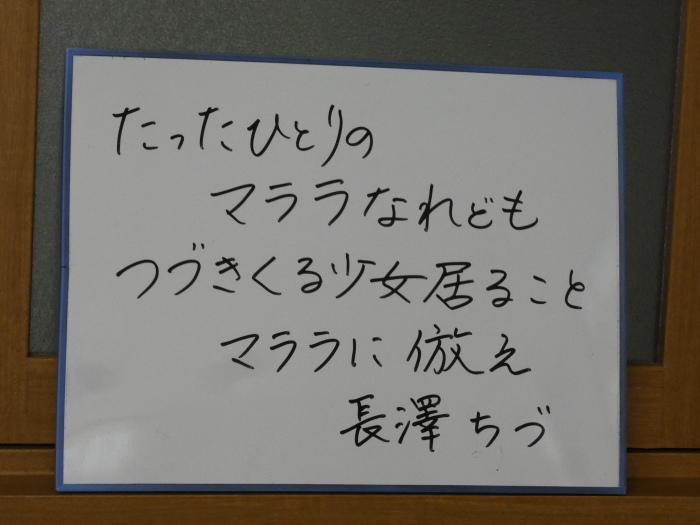 たったひとりの
マララなれども
つづきくる少女居ること
マララに倣え
長澤ちづ